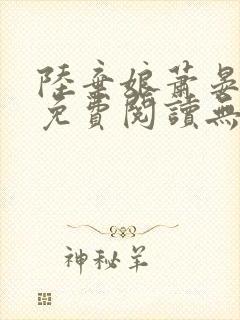 陸棄娘蕭晏
免費閱讀無
神秘羊